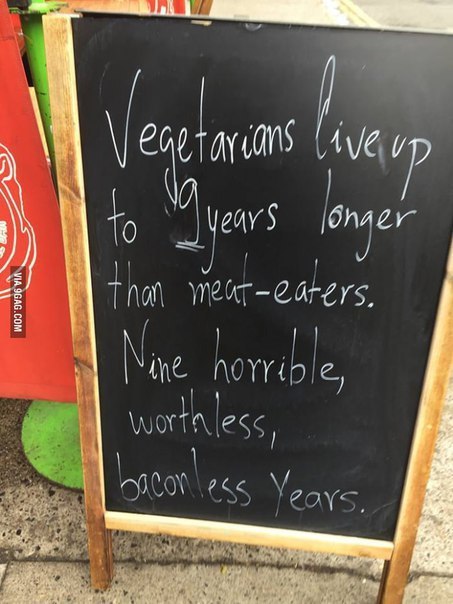 Vegetarians live up
to 9 years longer
than meat-eaters.
Nine horrible,
worthless,
baconless Years.
VIA 9GAG.COM